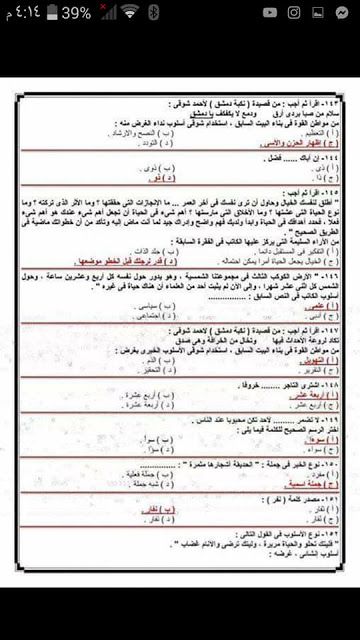 ٤:١٤ م 39%
١٤٣- اقرأ ثم أجب : من قصيدة ( نكبة دمشق ) لأحمد شوقى :
سلام من صبا بردى أرق ودمع لا يكفكف يا دمشق
من مواطن القوة فى بناء البيت السابق ، استخدام شوقى أسلوب نداء الغرض منه :
( أ ) التعظيم . ( ب ) النصح والإرشاد .
( ج ) إظهار الحزن والأسى . ( د ) التودد .
١٤٤- إن أباك ...... فضل .
( أ ) ذى . ( ب ) ذوى .
( ج ) ذا . ( د ) ذو .
١٤٥- اقرأ ثم أجب :
" أطلق لنفسك الخيال وحاول أن ترى نفسك فى آخر العمر ... ما الإنجازات التى حققتها ؟ وما الأثر الذى تركته ؟ وما
نوع الحياة التى عشتها ؟ وما الأخلاق التى مارستها ؟ أهم شىء فى الحياة أن تجعل أهم شىء عندك هو أهم شىء
فعلا ، فحدد أهدافك فى الحياة وابدأ ولديك فهم واضح وإدراك جيد لما أنت ماض إليه وتأكد من أن خطواتك ماضية فى
الطريق الصحيح "
من الآراء السليمة التى يركز عليها الكاتب فى الفقرة السابقة :
( أ ) التفكير فى المستقبل دائما . ( ب ) جلد الذات .
( ج ) الخيال يجعل الحياة أمرا يمكن احتماله . ( د ) قدر لرجلك قبل الخطو موضعها .
١٤٦- " الأرض الكوكب الثالث فى مجموعتنا الشمسية ، وهو يدور حول نفسه كل أربع وعشرين ساعة ، وحول
الشمس كل اثنى عشر شهرا ، وإلى الآن لم يثبت أحد من العلماء أن هناك حياة فى غيره " .
أسلوب الكاتب فى النص السابق : ................
( أ ) علمى . ( ب ) سياسى .
( ج ) أدبى . ( د ) اجتماعى .
١٤٧- اقرأ ثم أجب : من قصيدة ( نكبة دمشق ) لأحمد شوقى :
تكاد لروعة الأحداث فيها وتخال من الخرافة وهى صدق
من مواطن القوة فى بناء البيت السابق ، استخدام شوقى الأسلوب الخبرى بغرض :
( أ ) التهويل . ( ب ) الذم .
( ج ) التقرير . ( د ) التحقير .
١٤٨- اشترى التاجر ........ خروفا .
( أ ) أربعة عشر . ( ب ) أربع عشرة .
( ج ) أربع عشر . ( د ) أربعة عشرة .
١٤٩- لا تضمر ......... لأحد تكن محبوبا عند الناس .
اختر الرسم الصحيح للكلمة فيما يلى :
( أ ) سوءًا . ( ب ) سوأ .
( ج ) سواء . ( د ) سوءً .
١٥٠- نوع الخبر فى جملة : " الحديقة أشجارها مثمرة " : ................
( أ ) مفرد . ( ب ) جملة فعلية .
( ج ) جملة اسمية . ( د ) شبه جملة .
١٥١- مصدر كلمة ( نفر ) :
( أ ) نفار . ( ب ) نفار .
( ج ) نفار . ( د ) نفار .
١٥٢- نوع الأسلوب فى القول التالى :
" فليتك تحلو والحياة مريرة ، وليتك ترضى والأنام غضاب " .
أسلوب إنشائى ، غرضه :